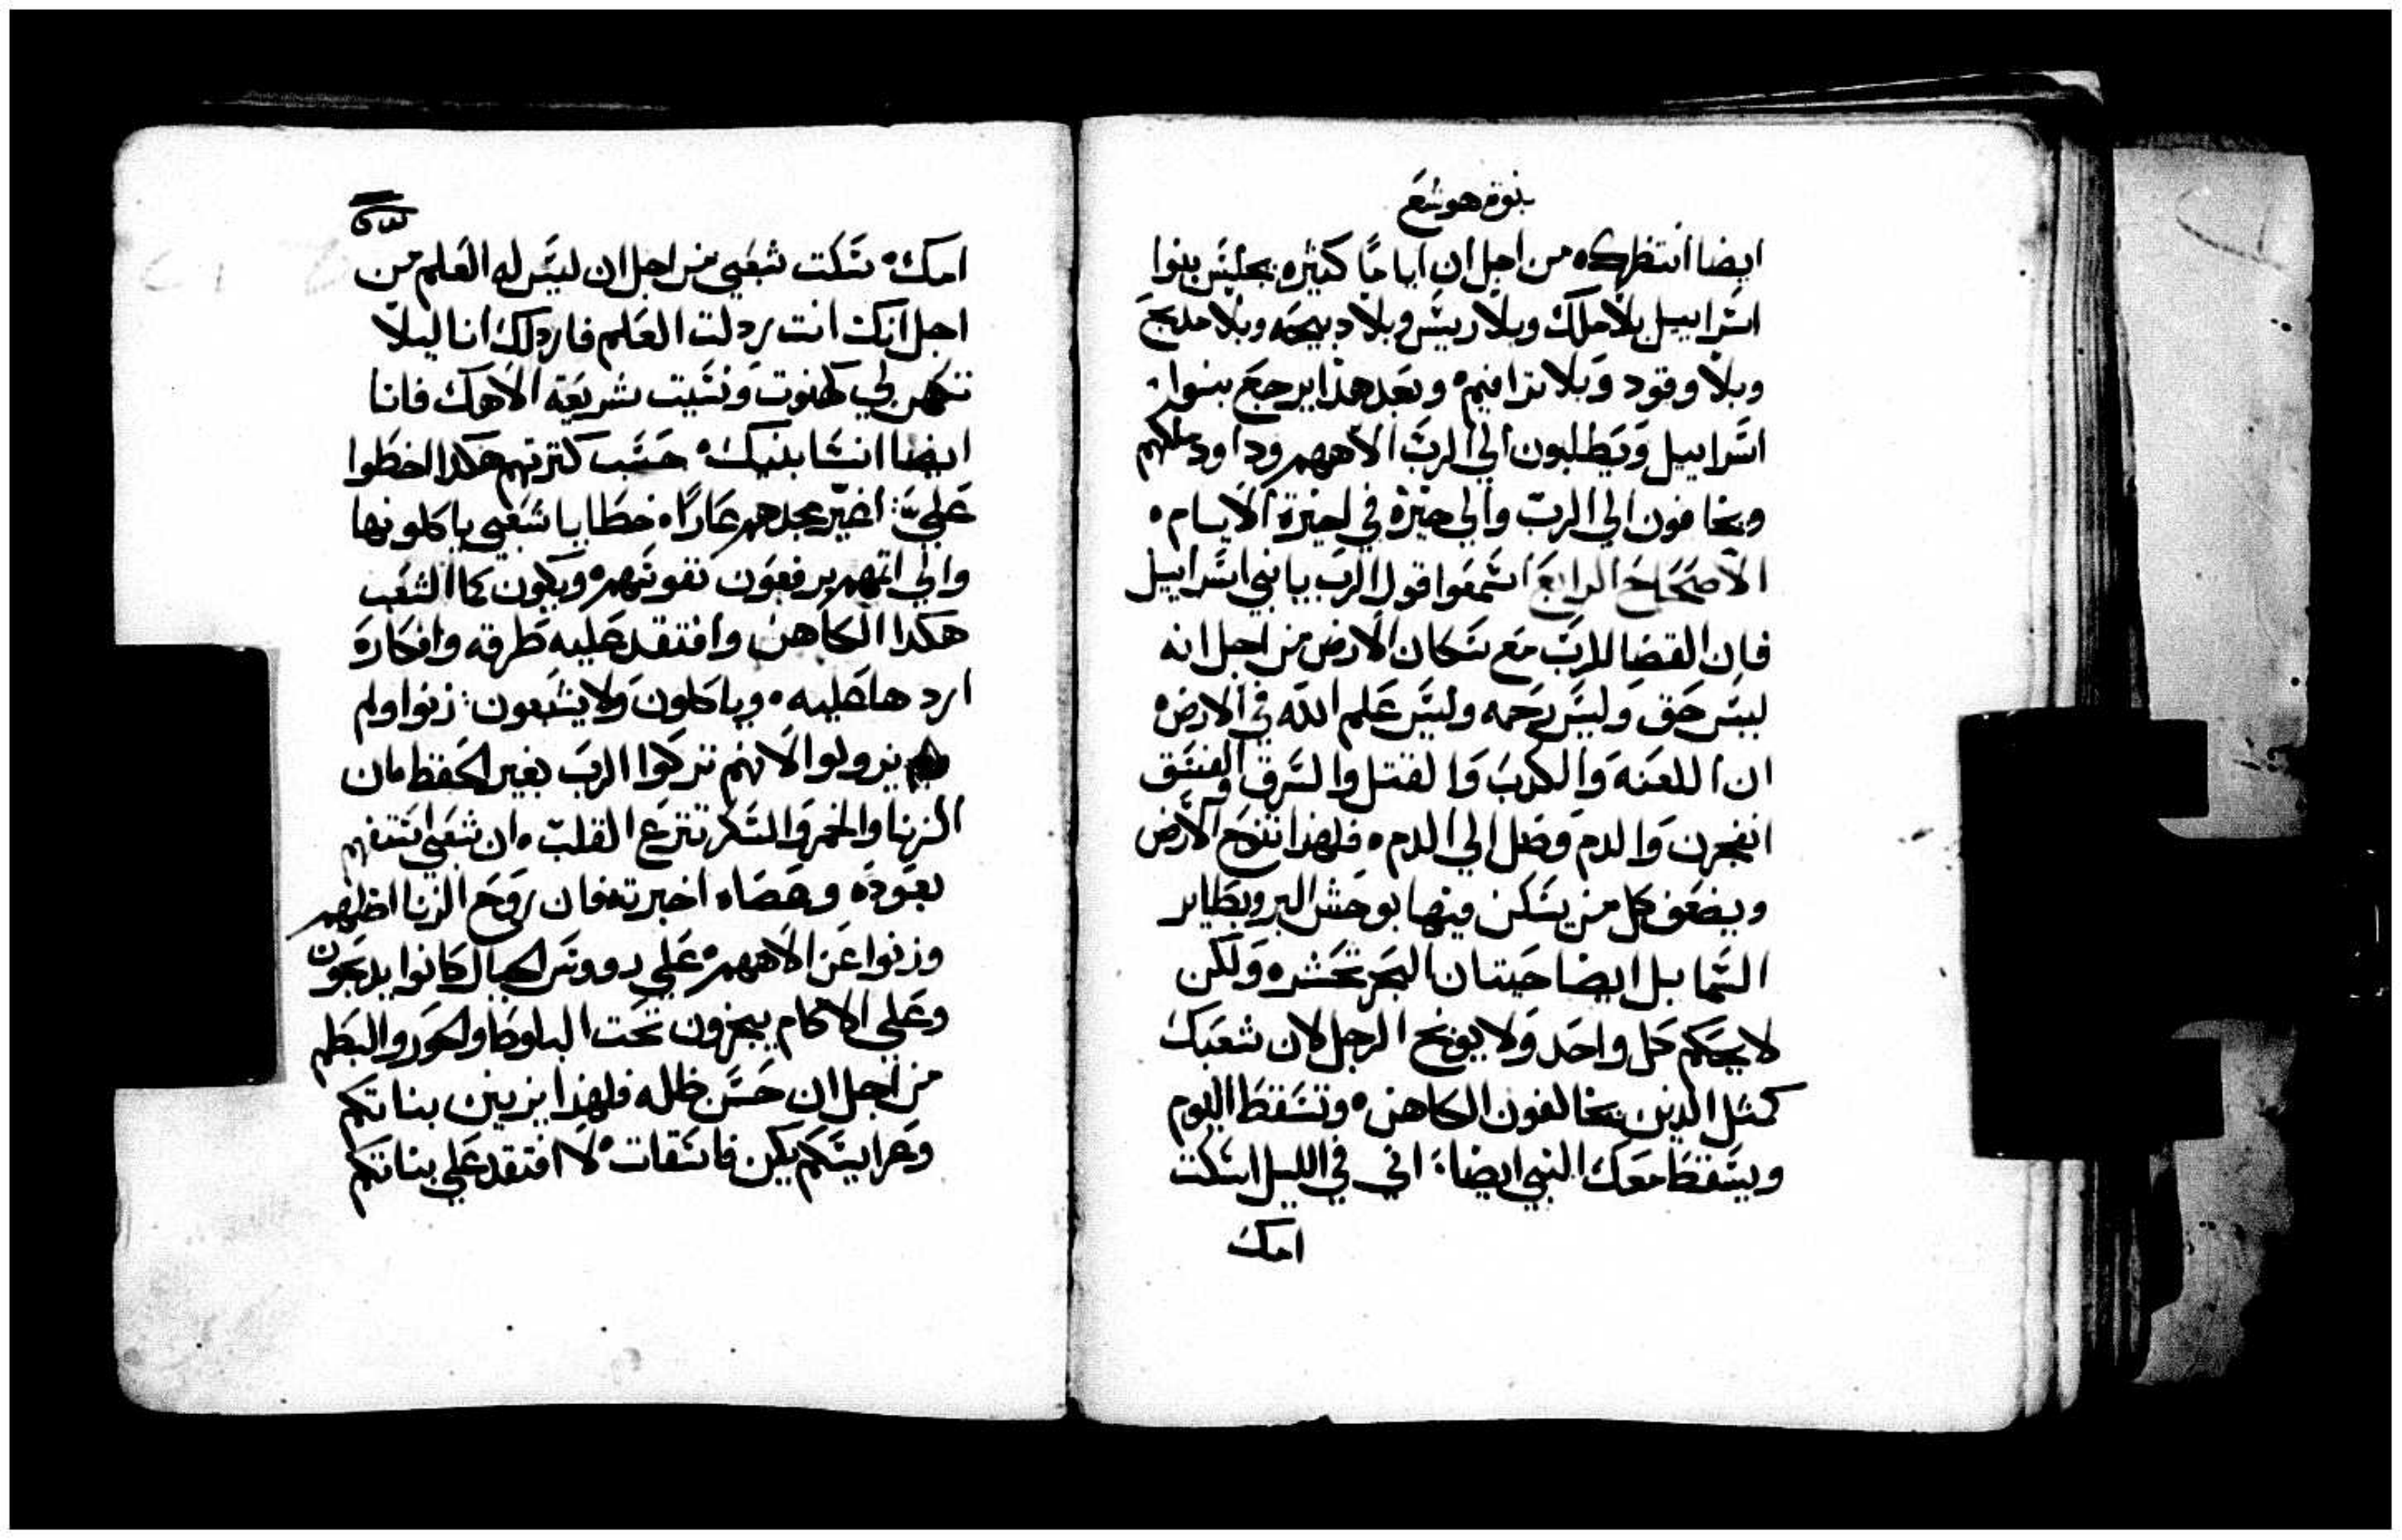 نبوة هوشع
ايضا انتظرك ه من اجل ان اياما كثيره يجلس بنوا
اسراييل بلا ملك وبلا ريس وبلا دبيحه وبلا مدبح
وبلا وقود وبلا ترافيم ه وبعد هذا يرجع بنوا
اسراييل ويطلبون الي الرب الاههم وداود ملكهم
ويخافون الي الرب والي خيره في اخيرة الايام ه
الاصحاح الرابع اسمعوا قول الرب يا بني اسراييل
فان القضا للرب مع سكان الارض من اجل انه
ليس حق وليس رحمه وليس علم الله في الارض ه
ان اللعنه والكدب والقتل والسرق والفسق
انفجرن والدم وصل الي الدم ه فلهذا تنوح الارض
ويضعف كل من يسكن فيها بوحش البر وبطاير
السما بل ايضا حيتان البحر تحشر ه ولكن
لا يحكم كل واحد ولا يوبخ الرجل لان شعبك
كمثل الدين يخالفون الكاهن ه وتسقط اليوم
ويسقط معك النبي ايضا ه اني في الليل اسكت
امك
امك ه سكت شعبي من اجل ان ليس له العلم من
اجل انك انت ردلت العلم فاردلك انا ليلا
تكهن لي كهنوت ونسيت شريعة الاهك فانا
ايضا انسا بنيك ه حسب كترتهم هكدا اخطوا
علي ه اغير مجدهم عارا ه خطايا شعبي ياكلونها
والي اتمهم يرفعون نفوسهم ه ويكون كما الشعب
هكدا الكاهن وافتقد عليه طرقه وافكاره
اردها عليه ه وياكلون ولا يشبعون ه زنوا ولم
يزولوا لانهم تركوا الرب بغير الحفظ ه ان
الزنا والخمر والسكر تنزع القلب ه ان شعبي استفهم
بعوده وعصاه اخبرته فان روح الزنا اضلهم
وزنوا عن الاههم ه علي رووس الجبال كانوا يدبحون
وعلي الاكام يبخرون تحت البلوط والحور والبطم
من اجل ان حسن ظله فلهذا يزنين بناتكم
وعرايسكم يكن فاسقات ه لا افتقد علي بناتكم